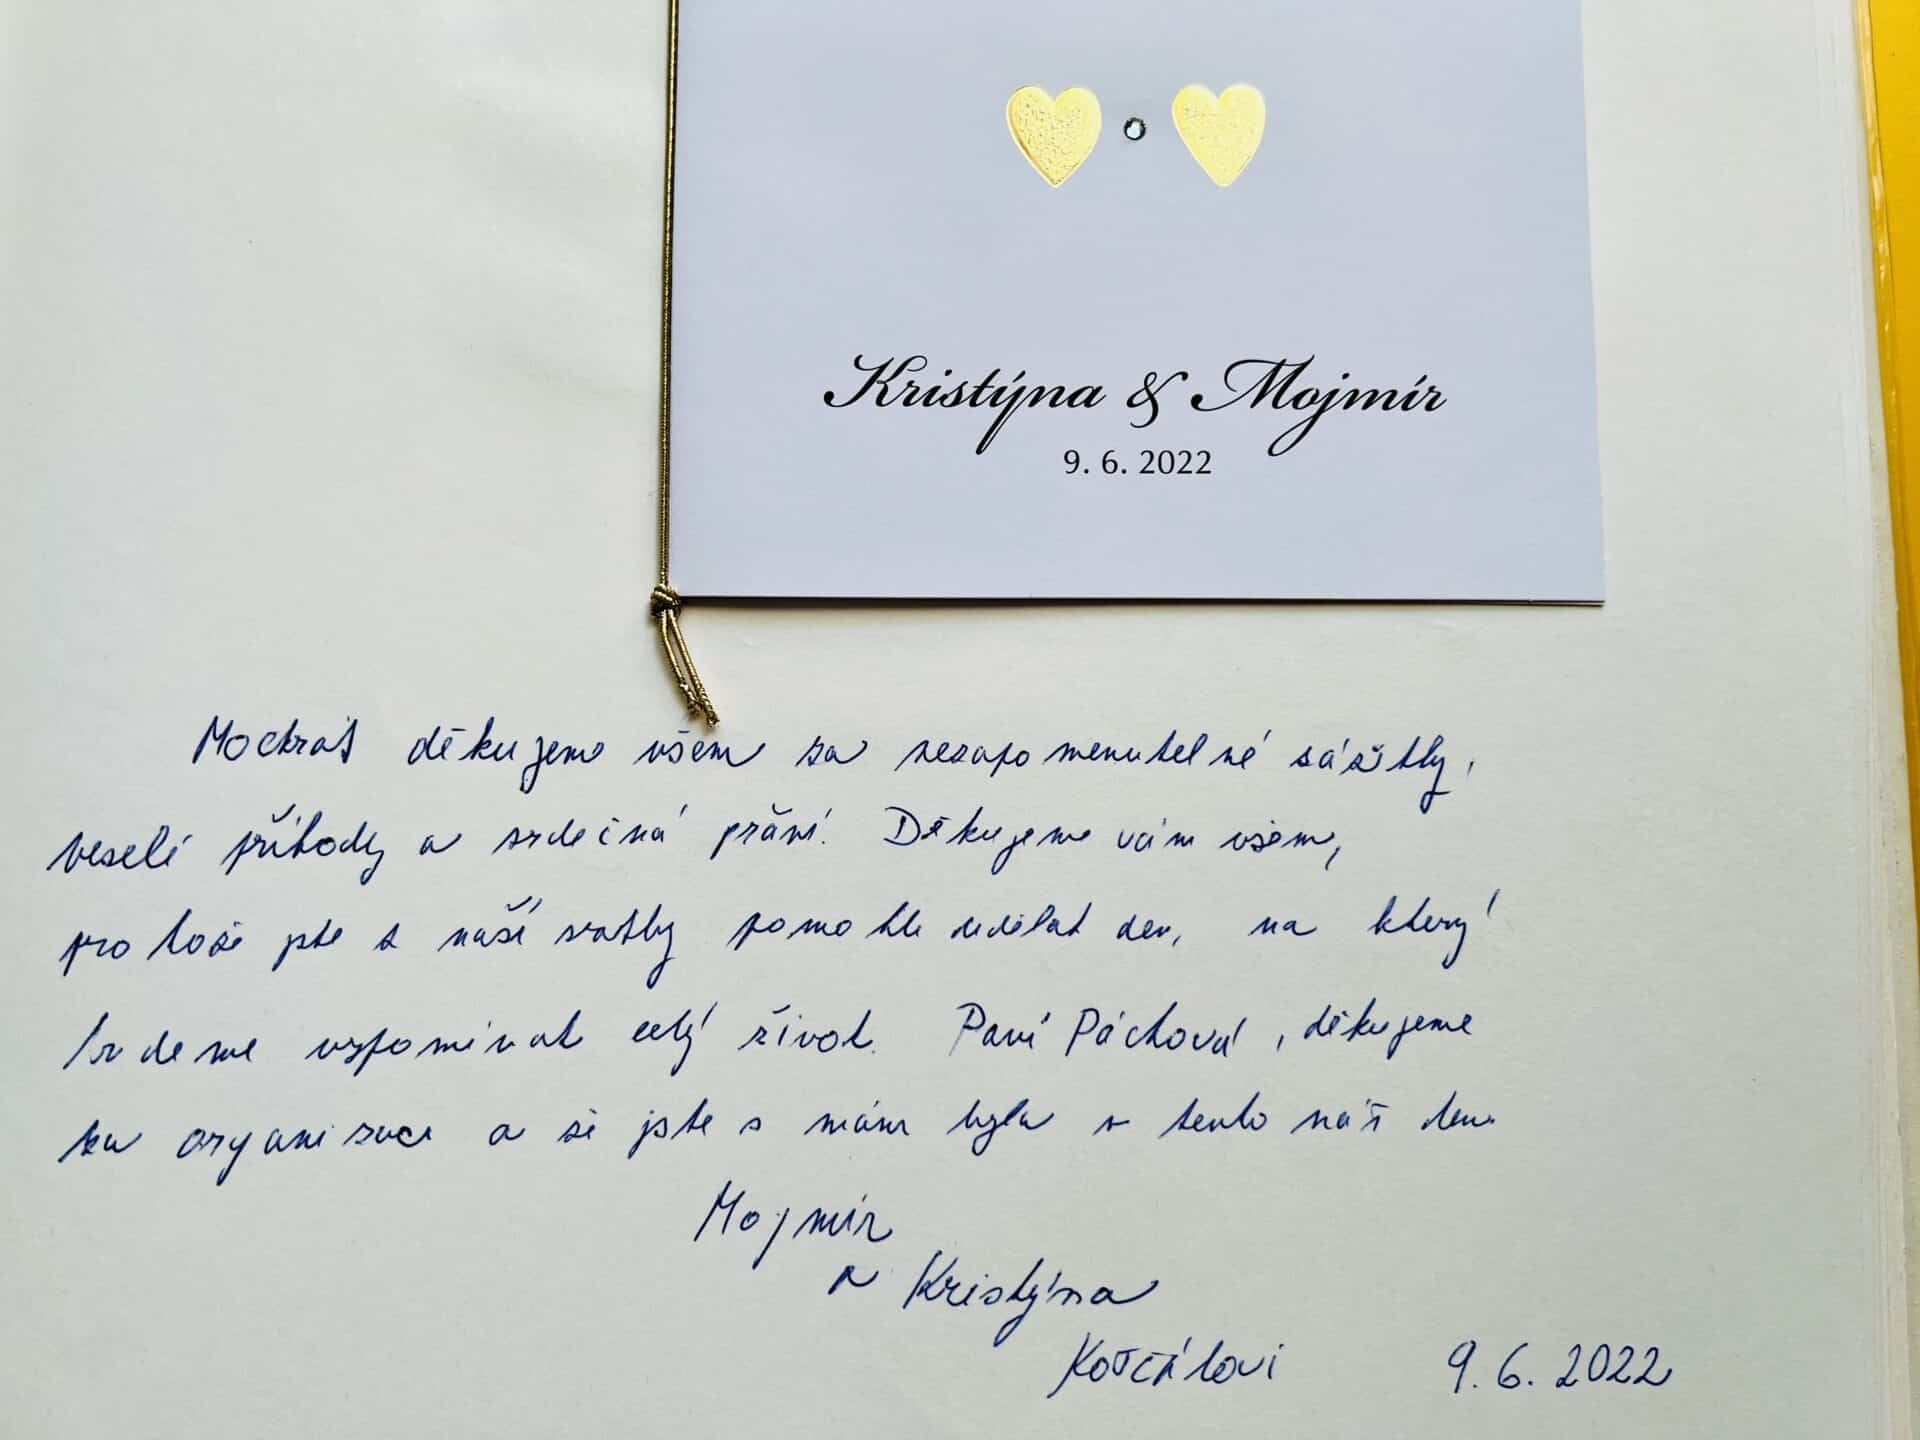 Kristýna & Mojmír
9. 6. 2022
Mockrát děkujeme všem za nezapomenutelné zážitky,
veselé příhody a srdečná přání. Děkujeme vám všem,
protože jste z naší svatby pomohli udělat den, na který
budeme vzpomínat celý život. Paní Páchová, děkujeme
za organizaci a že jste s námi byla v tento náš den.
Mojmír
a Kristýna
9. 6. 2022